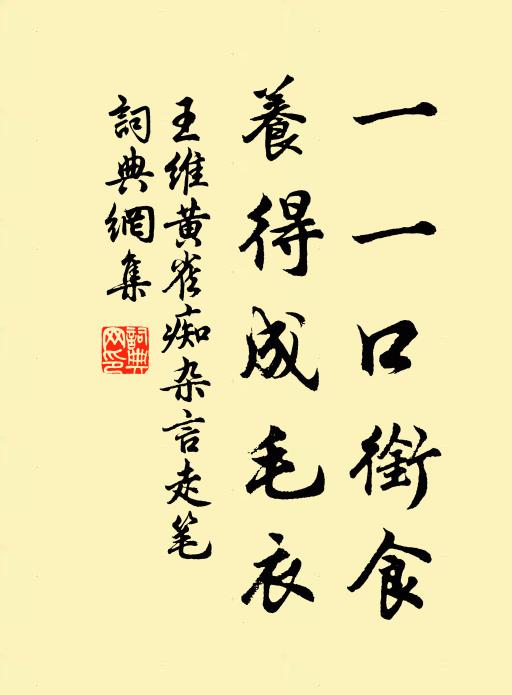 一一口銜食
養得成毛衣
王維黄雀痴杂言走笔
詞典網集
詞典网印